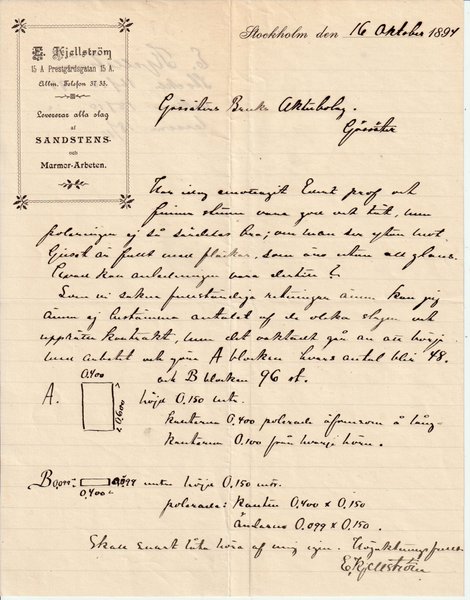 E. Kjellström
15 A Prestgårdsgatan 15 A.
Allm. Telefon 37 35.
Levereras alla slag
af
SANDSTENS-
och
Marmor-Arbeten.
Stockholm den 16 Oktober 1894
Gössäters Bruks Aktiebolag.
Gössäter
Har idag emottagit Edert prof och
finner stenen vara god och tät, men
poleringen ej så särdeles bra; om man ser ytan mot
ljuset är full med fläckar, som äro utan all glans.
Hvad kan anledningen vara dertill?
Som vi sakna fullständiga ritningar ännu kan jag
ännu ej bestämma antalet af de olika slagen och
upprätta kontrakt, men det oaktadt går an att börja
med arbetet och göra A blocken hvars antal blir 48.
och B blocken 96 st.
0,400
A. höjd 0,150 mtr.
0,600
kanterna 0,400 polerade äfvensom å lång-
kanterna 0,100 från hvarje hörn.
B 0,099 mtr höjd 0,150 mtr.
0,400
polerade: kanten 0,400 x 0,150
ändarne 0,099 x 0,150.
Skall snart låta höra af mig igen. Högaktningsfullt
E. Kjellström